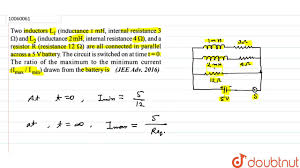 10060061
Two inductors L₁ (inductance 1 mH, internal resistance 3
Ω) and L₂ (inductance 2 mH, internal resistance 4 Ω), and a
resistor R (resistance 12 Ω) are all connected in parallel
across a 5 V battery. The circuit is switched on at time t = 0.
The ratio of the maximum to the minimum current
(I_max / I_min) drawn from the battery is (JEE Adv. 2016)
1 mH 3Ω
2 mH 4Ω
12 Ω
5V S
At t=0, Imin = 5/12
at, t=∞, Imax = 5/Req.
doubtnut